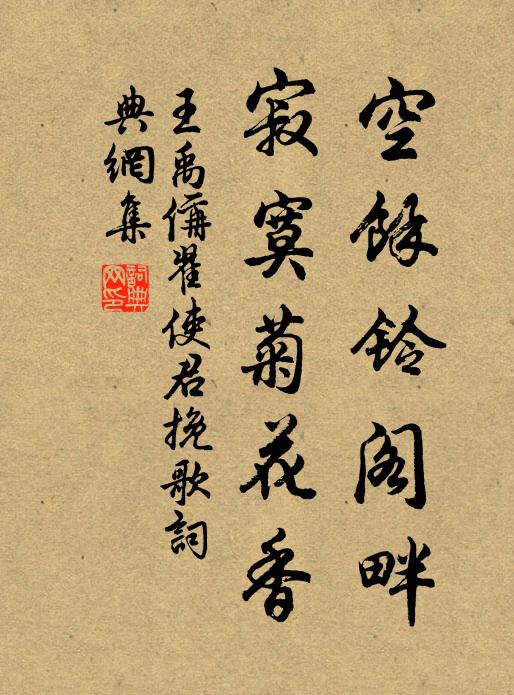 空餘鈴阁畔
寂寞菊花香
王禹偁翟使君挽歌詞
典網集
詞典网印